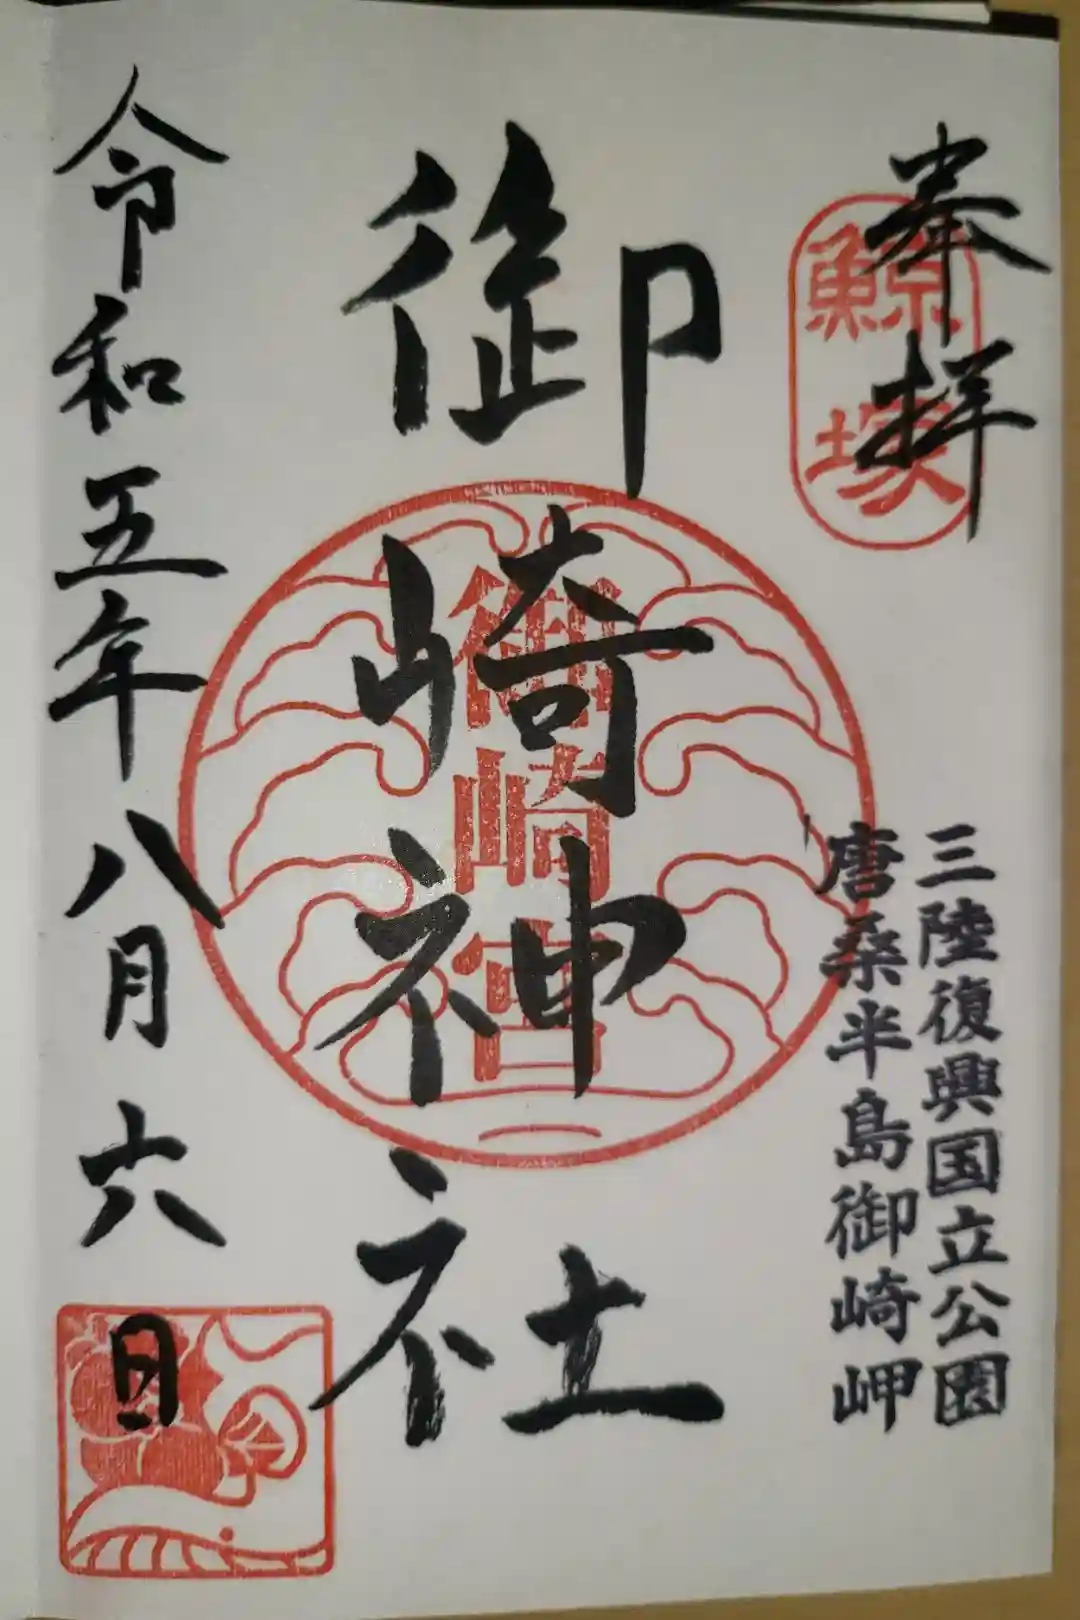 奉拝
鯨塚
三陸復興国立公園
唐桑半島御崎岬
御崎神社
御崎宮
令和五年八月六日